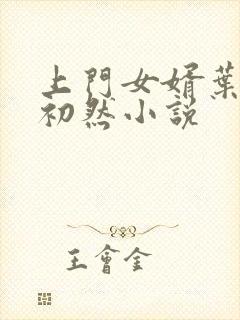 上門女婿葉
初然小説
王會金